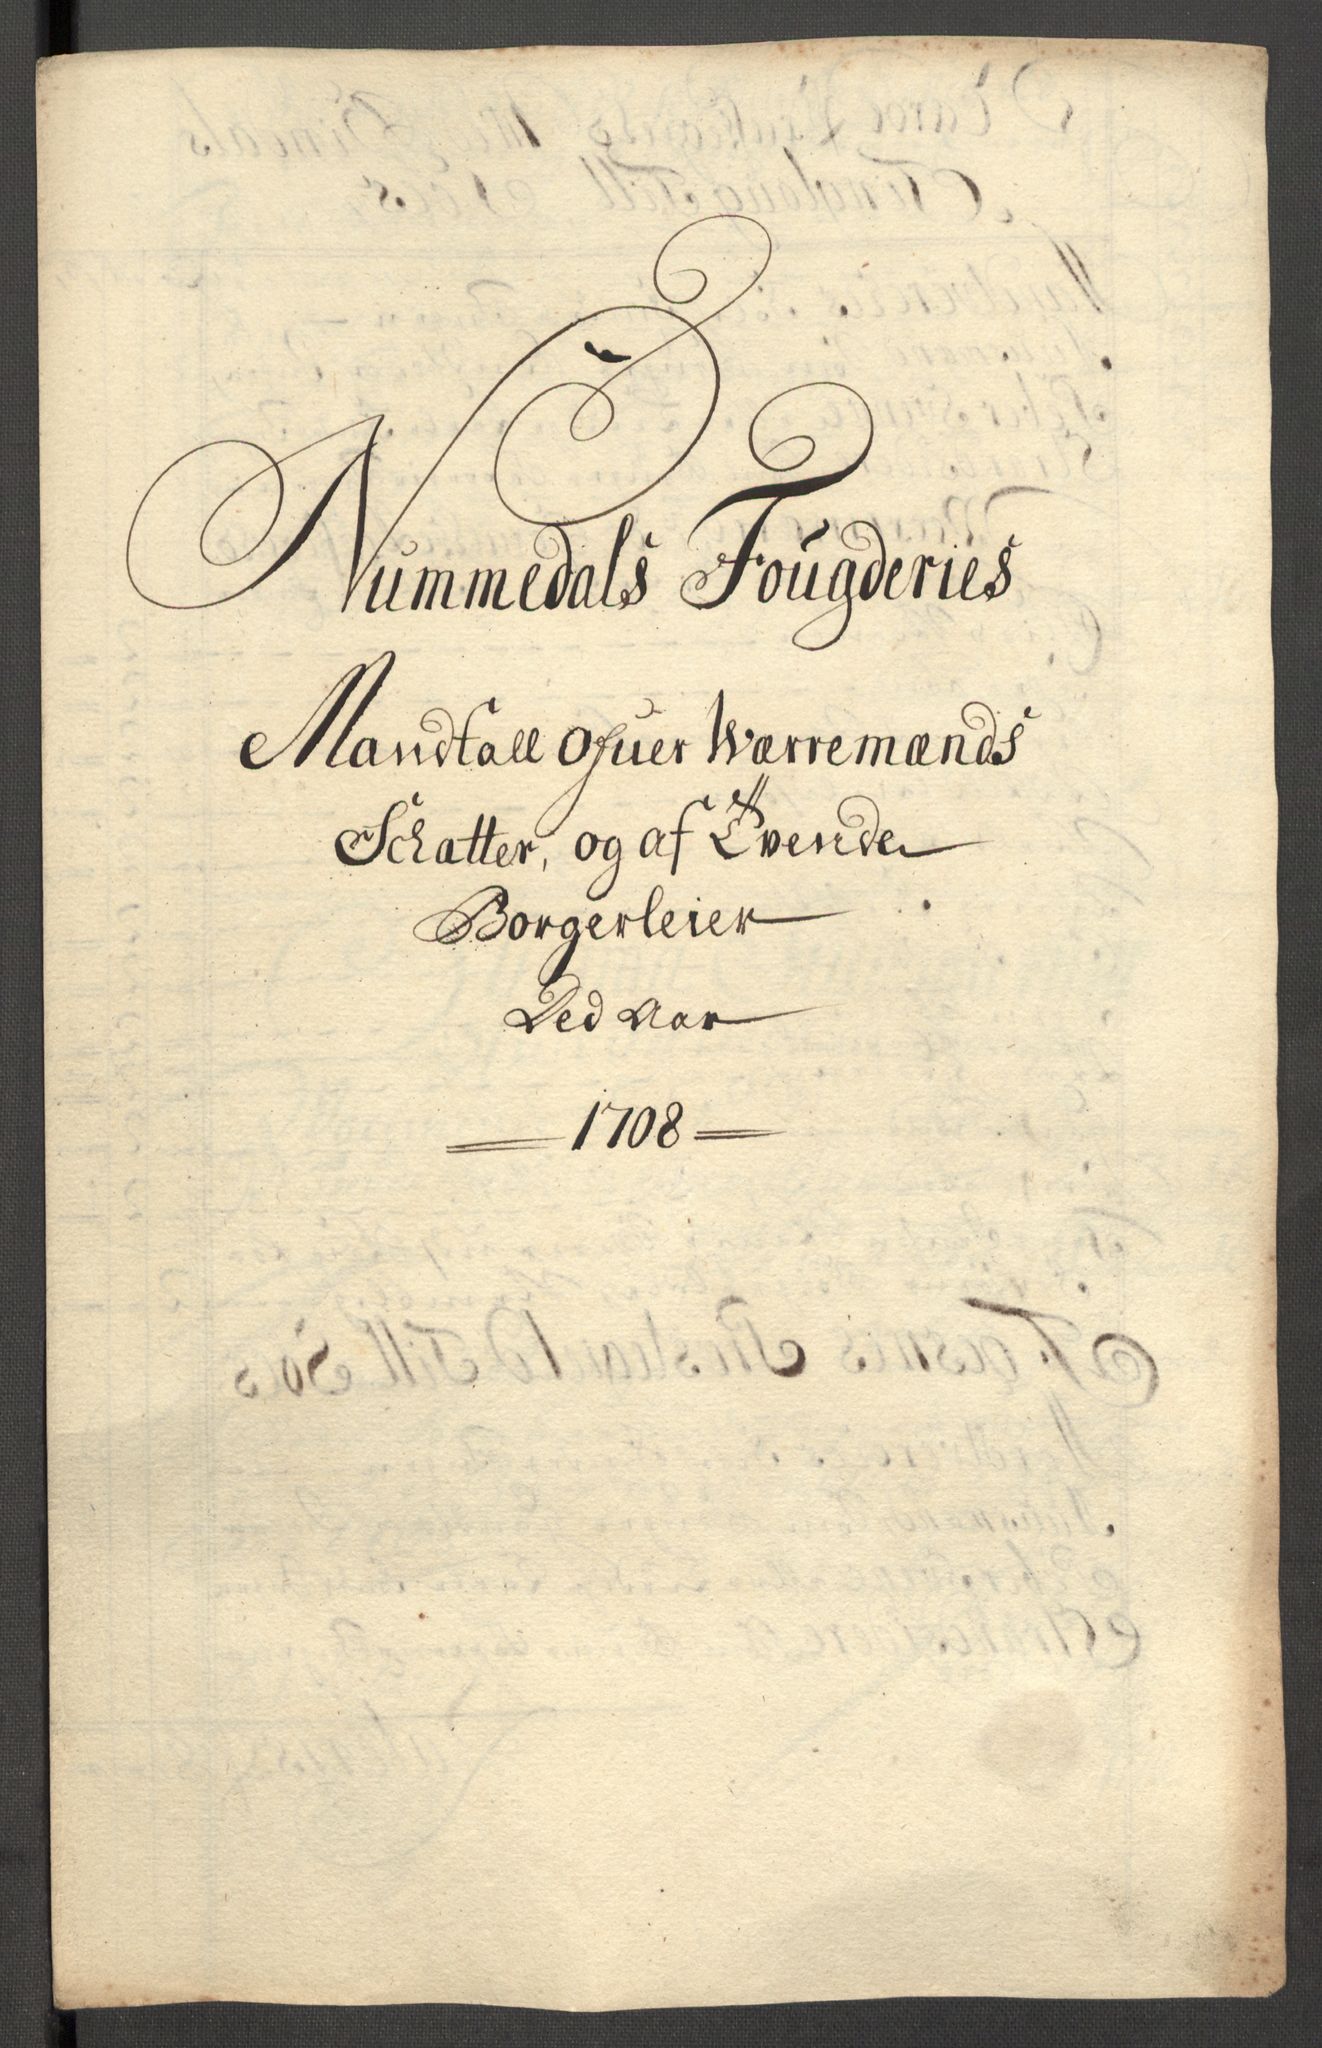 Nummedals Fougderies
Mandtall ofuer Værremænds
Schatter, og af Evende
Borgerleier
Ded Aar
1708